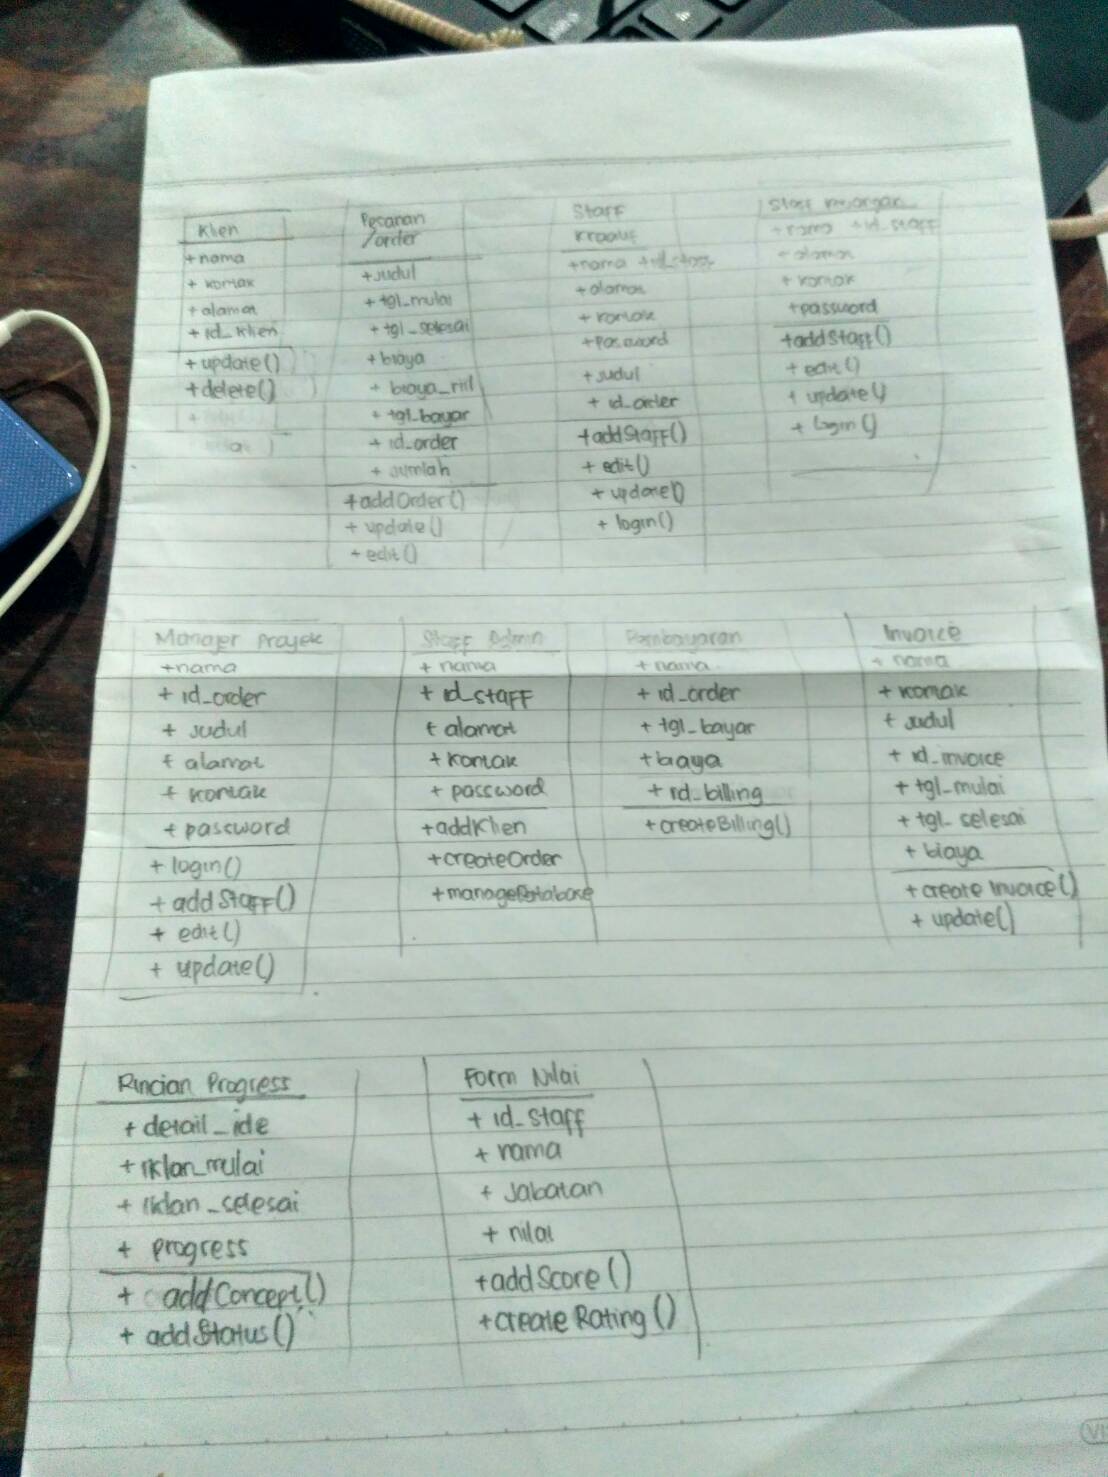 Klien
+nama
+ kontak
+alamat
+ id_klien
+ update()
+delete()
Pesanan
/order
+judul
+ tgl_mulai
+ tgl_selesai
+ biaya
+ biaya_riil
+ tgl_bayar
+ id_order
+ Jumlah
+addOrder()
+ update()
+ edit()
Staff
Kreatif
+nama +id_staff
+alamat
+ kontak
+Password
+judul
+ id_order
+addStaff()
+ edit()
+ update()
+ login()
Staff Keuangan
+nama +id_staff
+ alamat
+ kontak
+password
+addStaff()
+ edit()
+ update()
+ login()
Manajer Proyek
+nama
+ id_order
+ judul
+ alamat
+ kontak
+ password
+ login()
+ addStaff()
+ edit()
+ update()
Staff Admin
+ nama
+ id_staff
+ alamat
+ kontak
+ password
+addKlien
+createOrder
+manageDatabase
Pembayaran
+ nama
+ id_order
+ tgl_bayar
+biaya
+ id_billing
+createBilling()
Invoice
+ nama
+ kontak
+ judul
+ id_invoice
+ tgl_mulai
+ tgl_selesai
+ biaya
+create Invoice()
+ update()
Rincian Progress
+ detail_ide
+iklan_mulai
+ iklan_selesai
+ progress
+ addConcept()
+ addStatus()
Form Nilai
+ id_staff
+ nama
+ Jabatan
+ nilai
+addScore()
+createRating()